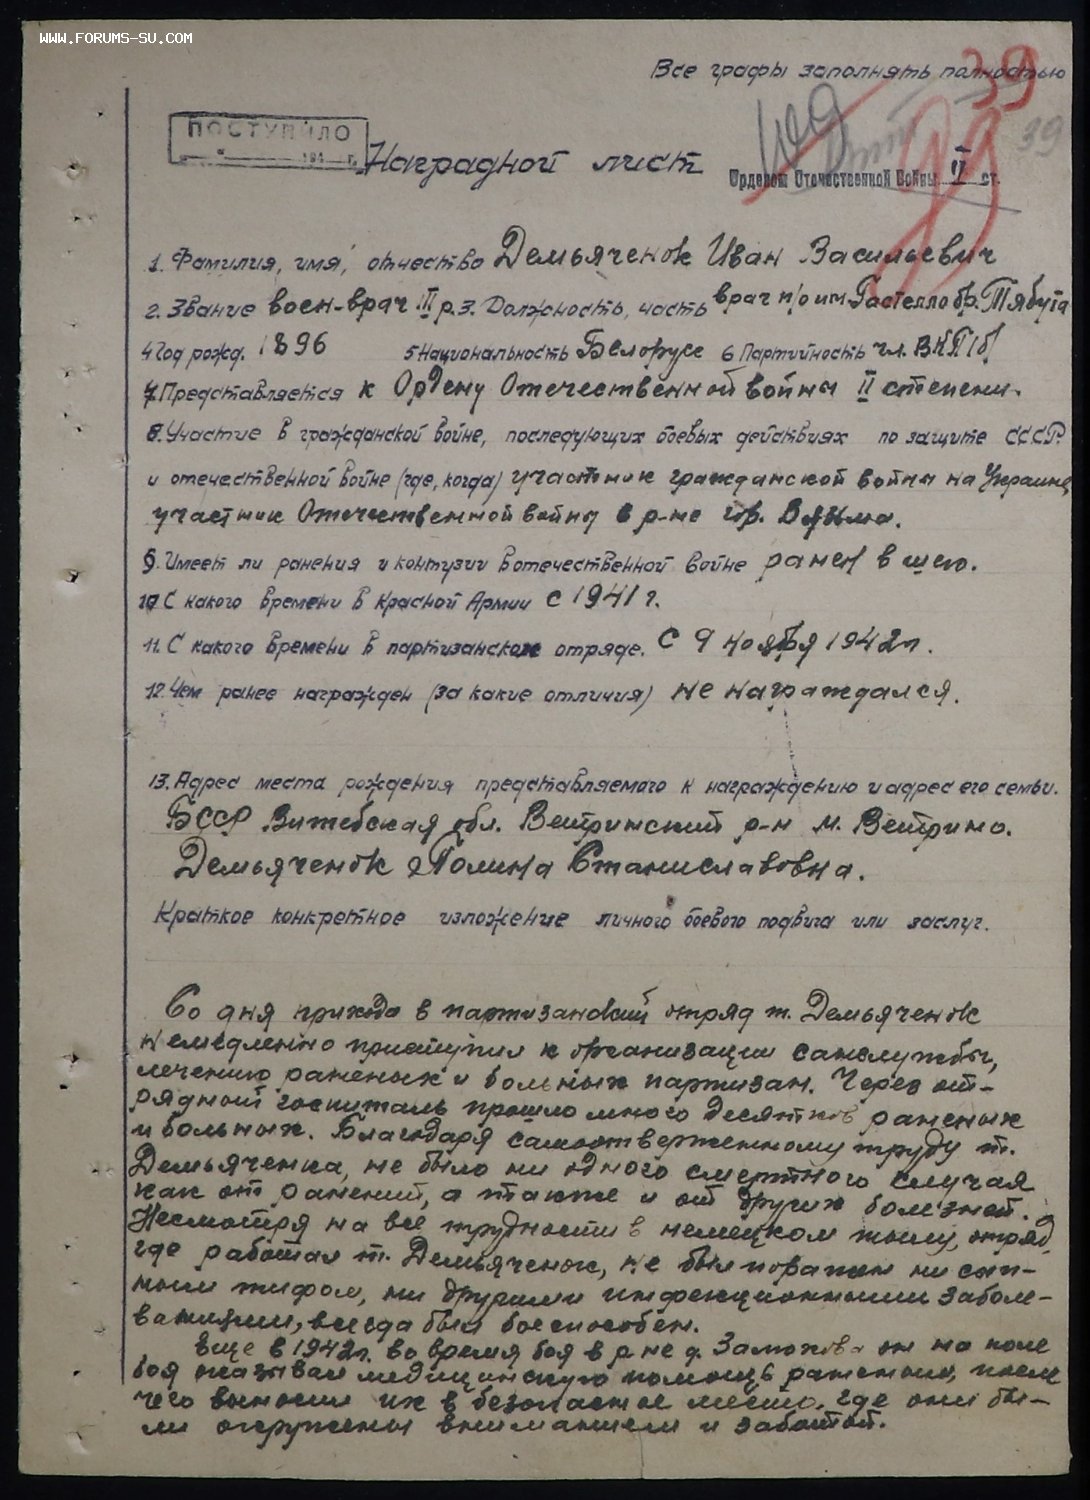 WWW.FORUMS-SU.COM
Все графы заполнять полностью
39
39
ПОСТУПИЛО
194 г.
Наградной лист
Орденом Отечественной Войны II ст.
1. Фамилия, имя, отчество Демьяченок Иван Васильевич
2. Звание воен-врач III р. 3. Должность, часть врач п/о им. Гастелло бр. Тябута
4 Год рожд. 1896 5 Национальность Белорусс 6 Партийность чл. ВКП(б)
7. Представляется к Ордену Отечественной войны II степени.
8. Участие в гражданской войне, последующих боевых действиях по защите СССР.
и отечественной войне (где, когда) участник гражданской войны на Украине,
участник Отечественной войны в р-не гор. Вязьма.
9. Имеет ли ранения и контузии в отечественной войне ранен в шею.
10 С какого времени в Красной Армии с 1941 г.
11. С какого времени в партизанском отряде. С 9 ноября 1942 г.
12. Чем ранее награжден (за какие отличия) не награждался.
13. Адрес места рождения представляемого к награждению и адрес его семьи.
БССР Витебская обл. Ветринский р-н м. Ветрино.
Демьяченок Полина Станиславовна.
Краткое конкретное изложение личного боевого подвига или заслуг.
Со дня прихода в партизанский отряд т. Демьяченок
немедленно приступил к организации санслужбы,
лечению раненых и больных партизан. Через от-
рядный госпиталь прошло много десятков раненых
и больных. Благодаря самоотверженному труду т.
Демьяченка, не было ни одного смертного случая
как от ранений, а также и от других болезней.
Несмотря на все трудности в немецком тылу, отряд,
где работал т. Демьяченок, не был поражен ни сып-
ным тифом, ни другими инфекционными заболе-
ваниями, всегда был боеспособен.
Еще в 1942 г. во время боя в р-не д. он на поле
боя оказывал медицинскую помощь раненым, после
чего выносил их в безопасное место, где они бы-
ли окружены вниманием и заботой.